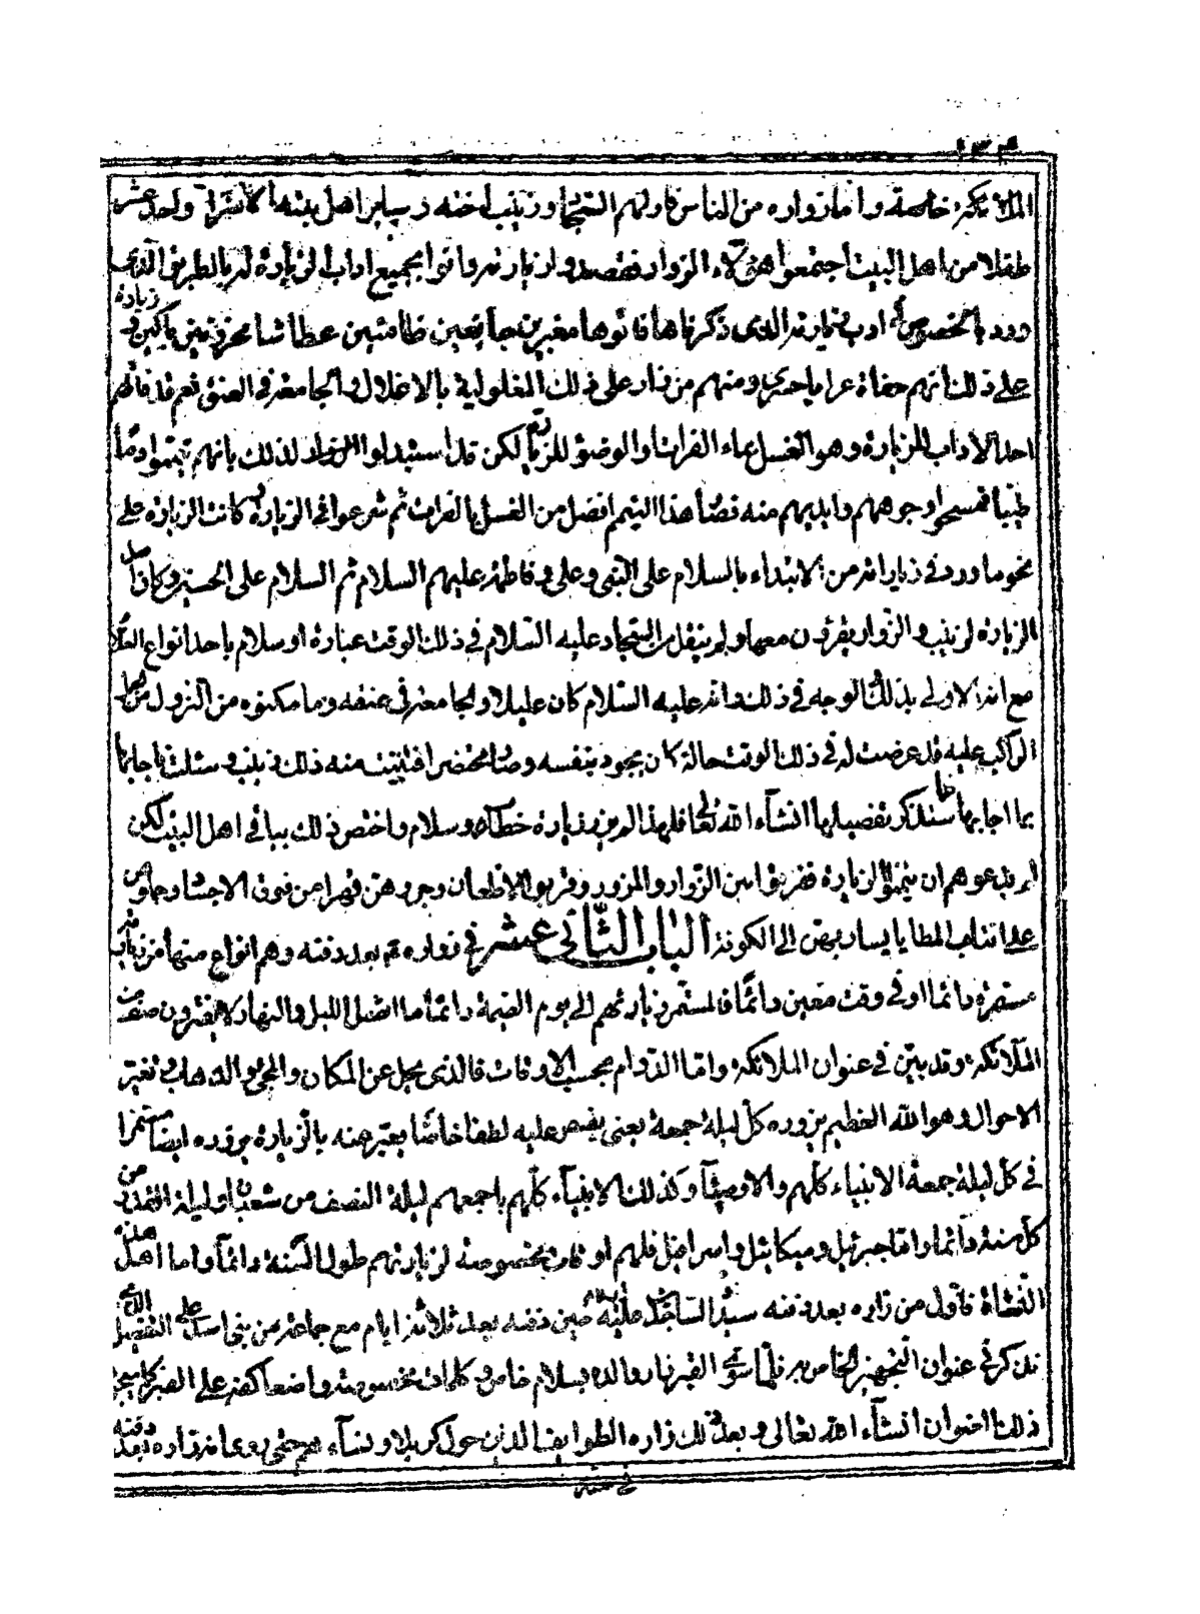 الملائكة خاصة واما زواره من الناس فاولهم السجاد وزينب اخته وسائر اهل بيته الاسراء واحد عشر
طفلا من اهل البيت اجتمعوا هؤلاء الزوار فقصدوا زيارته واتوا بجميع اداب الزيارة له بالطريق الذي
ورد بالخصوص في ادب زيارته الذي ذكرناها فاتوها مغبرين جائعين ظامئين عطاشا محزونين باكين في زيارة
على ذلك انهم حفاة عرايا حسرى ومنهم من زار على ذلك المغلولية بالاغلال والجامعة في العنق نعم قد فاتهم
احد الاداب للزيارة وهو الغسل بماء الفرات او الوضوء للزيارة لكن قد استبدلوا الزوار لذلك بانهم تيمموا دما
طيبا فمسحوا وجوههم وايديهم منه فصار هذا التيمم افضل من الغسل بالفرات ثم شرعوا في الزيارة كانت الزيارة على
نحو ما ورد في زياراته من الابتداء بالسلام على النبي وعلي وفاطمة عليهم السلام ثم السلام على الحسين وكان اصل
الزيارة لزينب والزوار يقرؤن معها ولم ينقل من السجاد عليه السلام في ذلك الوقت عبارة او سلام باحد انواع السلام
مع انه الاولى بذلك لعل الوجه في ذلك انه عليه السلام كان عليلا والجامعة في عنقه وما مكنوه من النزول من
الراكب عليه قد عرضت له في ذلك الوقت حالة كان يجود بنفسه وصار محتضرا فتبينت منه ذلك زينب وسئلت فاجابها
بما اجابها سنذكر تفصيلها انشاء الله تعالى فلهذا لم يزره زيارة خطاب وسلام واختص ذلك بباقي اهل البيت لكن
لم يدعوهم ان يتمموا الزيارة ففرقوا بين الزوار والمزور وفرقوا الاظعان وجروهن قهرا من فوق الاجساد وحملوهن
على اقتاب المطايا يسار بهن الى الكوفة الباب الثاني عشر في زواره ثم بعد دفنه وهم انواع منها من زيارته
مستمرة دائما او في وقت معين دائما فالمستمر زيارتهم الى يوم القيمة دائما اما اتصل الليل والنهار لا يفترون صنف من
الملائكة وقد بين في عنوان الملائكة واما الدوام بحسب الاوقات فالذي يجل عن المكان والمجئ والذهاب وتغير
الاحوال وهو الله العظيم يزوره كل ليلة جمعة يعني يفيض عليه لطفا خاصا يعبر عنه بالزيارة يزوره ايضا مستمرا
في كل ليلة جمعة الانبياء كلهم والاوصياء وكذلك الانبياء كلهم باجمعهم ليلة النصف من شعبان وليلة القدر من
كل سنة دائما واما جبرئيل وميكائيل واسرافيل فلهم اوقات مخصوصة لزيارتهم طول السنة دائما واما اهل هذه
النشاة فاول من زاره بعد دفنه سيد الساجدين عليه السلام حين دفنه بعد ثلاثة ايام مع جماعة من بني اسد على التفصيل الذي
نذكر في عنوان التجهيز الخاص به فلما سوى القبر زار والده بسلام خاص وكلمات مخصوصة واضعا كفه على القبر كما يجئ
ذلك العنوان انشاء الله تعالى وبعد ذلك زاره الطوايف الذين حول كربلا ونساء هم حتى روى انه زاره بعد دفنه